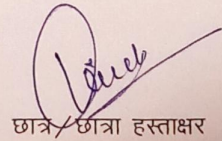 छात्र/छात्रा हस्ताक्षर